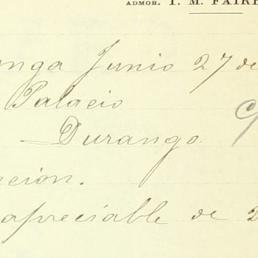 ADMOR. T. M. FAIR
nga Junio 27 de
Palacio
Durango.
cion.
apreciable de 2